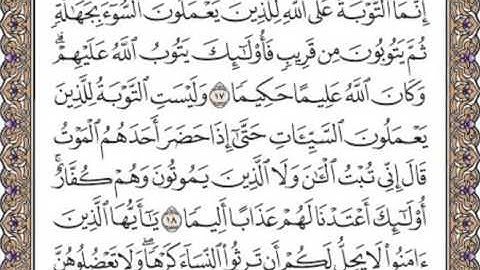 إِنَّمَا ٱلتَّوْبَةُ عَلَى ٱللَّهِ لِلَّذِينَ يَعْمَلُونَ ٱلسُّوٓءَ بِجَهَٰلَةٍ
ثُمَّ يَتُوبُونَ مِن قَرِيبٍ فَأُو۟لَٰٓئِكَ يَتُوبُ ٱللَّهُ عَلَيْهِمْ ۗ
وَكَانَ ٱللَّهُ عَلِيمًا حَكِيمًا ١٧ وَلَيْسَتِ ٱلتَّوْبَةُ لِلَّذِينَ
يَعْمَلُونَ ٱلسَّيِّـَٔاتِ حَتَّىٰٓ إِذَا حَضَرَ أَحَدَهُمُ ٱلْمَوْتُ
قَالَ إِنِّى تُبْتُ ٱلْـَٰٔنَ وَلَا ٱلَّذِينَ يَمُوتُونَ وَهُمْ كُفَّارٌ ۚ
أُو۟لَٰٓئِكَ أَعْتَدْنَا لَهُمْ عَذَابًا أَلِيمًا ١٨ يَٰٓأَيُّهَا ٱلَّذِينَ
ءَامَنُوا۟ لَا يَحِلُّ لَكُمْ أَن تَرِثُوا۟ ٱلنِّسَآءَ كَرْهًا ۖ وَلَا تَعْضُلُوهُنَّ